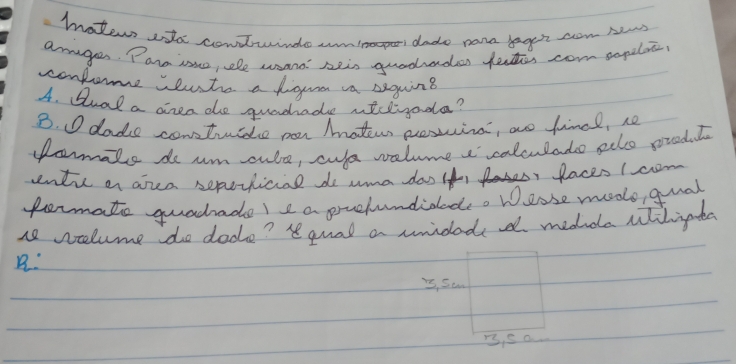 Mateus está construindo um dado para jogar com seus
amigos. Para isso, ele usará seis quadrados feitos com papelão,
conforme ilustra a figura a seguir:
A. Qual a área do quadrado utilizado?
B. O dado construído por Mateus possuirá, ao final, o
formato de um cubo, cujo volume é calculado pelo produto
entre a área superficial de uma das faces (com
formato quadrado) e a profundidade. Desse modo, qual
o volume do dado? E qual a unidade de medida utilizada
R:
3,5 cm
3,5 cm